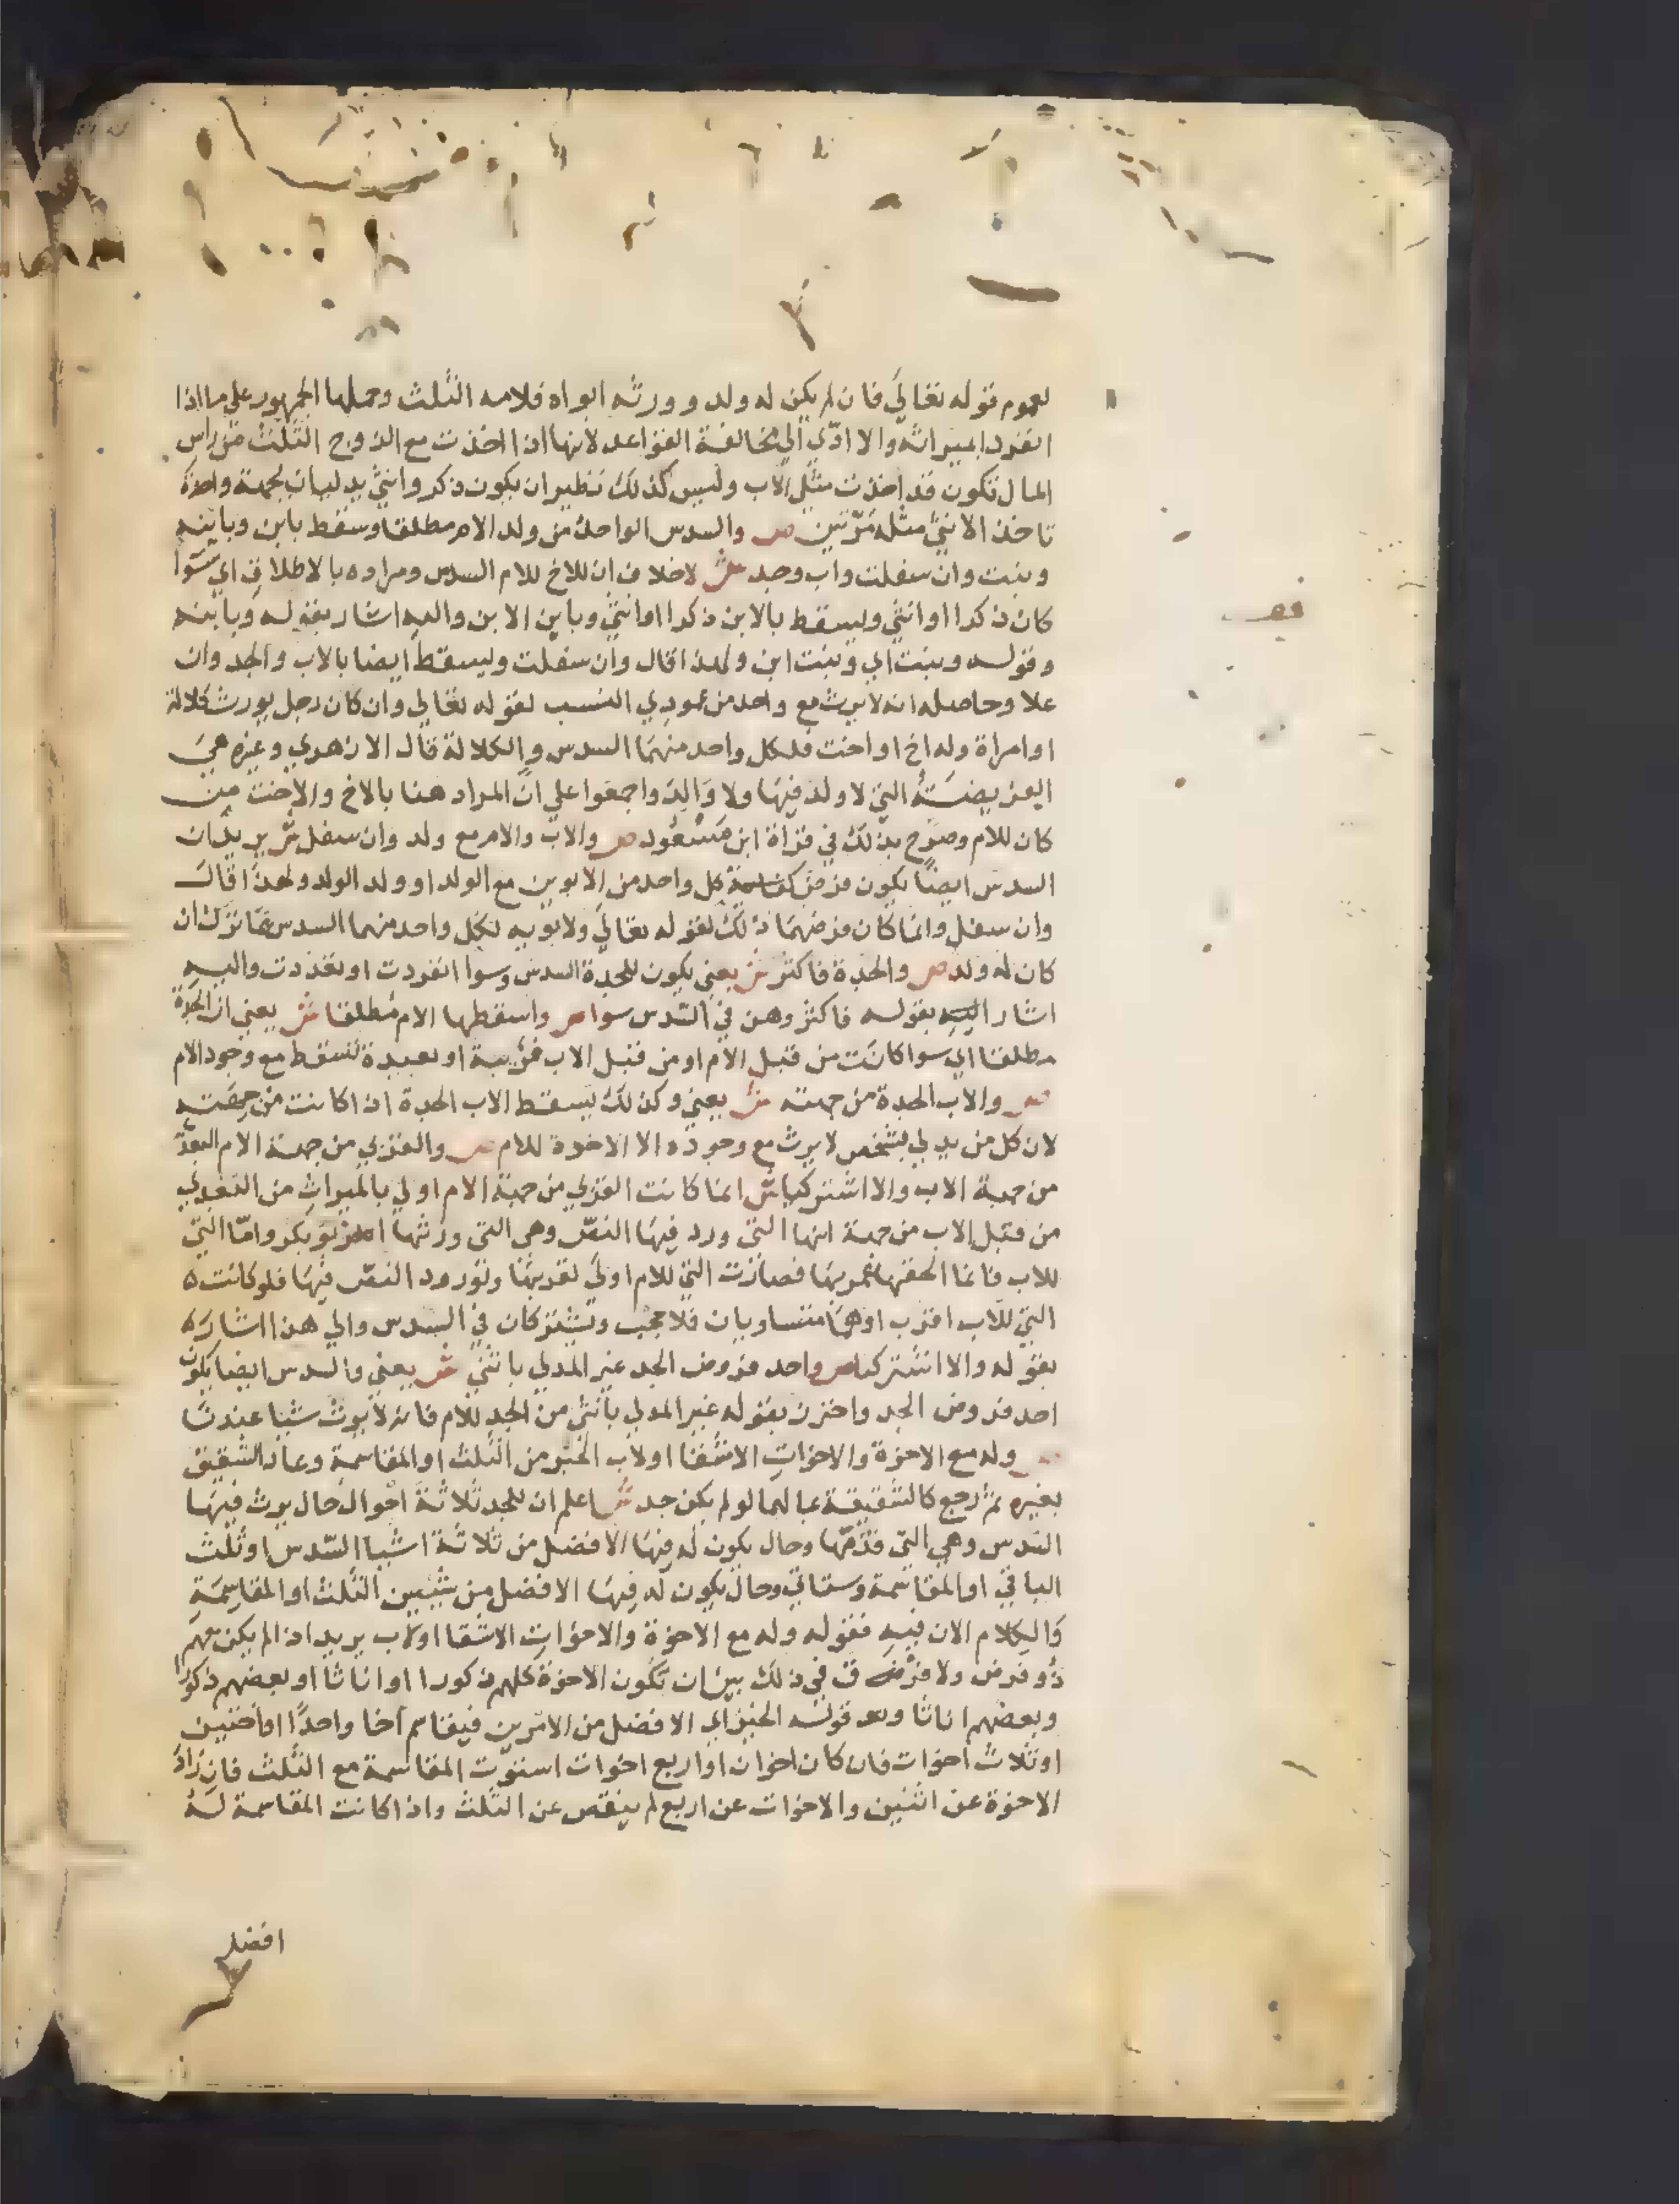 لعموم قوله تعالي فان لم يكن له ولد وورثه ابواه فلامه الثلث وحملها الجمهور علي ما اذا
انفردا بميراثه والا ادّي الي مخالفة القواعد لانها اذا اخذت مع الزوج الثلث من راس
المال تكون قد اخذت مثلي الاب وليس كذلك نظير ان يكون ذكر وانثي يدليان بجهة واحدة
تاخذ الانثي مثله مرّتين ص والسدس الواحد من ولد الام مطلقا وسقط بابن وبابنه
وبنت وان سفلت واب وجد ش لا خلاف ان للاخ للام السدس ومراده بالاطلاق اي سوا
كان ذكرا او انثي ويسقط بالابن ذكرا او انثي وبابن الابن واليه اشار بقوله وبابنه
وقوله وبنت اي وبنت ابن ولهذا قال وان سفلت ويسقط ايضا بالاب والجد وان
علا وحاصله انه لا يرث مع واحد من عمودي النسب لقوله تعالي وان كان رجل يورث كلالة
او امراة وله اخ او اخت فلكل واحد منهما السدس والكلالة قال الازهري وغيره هي
الفريضة التي لا ولد فيها ولا والد واجمعوا علي ان المراد هنا بالاخ والاخت من
كان للام وصرح بذلك في قراة ابن مسعود ص والاب والام مع ولد وان سفل ش يريد ان
السدس ايضا يكون فرض كل واحد من الابوين مع الولد او ولد الولد ولهذا قال
وان سفل وانما كان فرضهما ذلك لقوله تعالي ولابويه لكل واحد منهما السدس مما ترك ان
كان له ولد ص والجدة فاكثر ش يعني يكون للجدة السدس وسوا انفردت او تعددت واليه
اشار اليه بقوله فاكثر وهن في السدس سوا ص واسقطها الام مطلقا ش يعني ان الجدة
مطلقا اي سوا كانت من قبل الام او من قبل الاب قريبة او بعيدة تسقط مع وجود الام
ص والاب الجدة من جهته ش يعني وكذلك يسقط الاب الجدة اذا كانت من جهته
لان كل من يدلي بشخص لا يرث مع وجوده الا الاخوة للام ص والقربي من جهة الام البعدي
من جهة الاب والا اشتركا ش انما كانت القربي من جهة الام اولي بالميراث من البعدي
من قبل الاب من جهة انها التي ورد فيها النص وهي التي ورثها ابو بكر وامّا التي
للاب فانما الحقها عمر بها فصارت التي للام اولي لقربها ولورود النص فيها فلو كانت
التي للاب اقرب او هما متساويان فلا حجب وتشتركان في السدس والي هذا اشار
بقوله والا اشتركا ص واحد فروض الجد غير المدلي بانثي ش يعني والسدس ايضا يكون
احد فروض الجد واحترز بقوله غير المدلي بانثي من الجد للام فانه لا يرث شيا عندنا
ص وله مع الاخوة والاخوات الاشقا او لاب الخير من الثلث او المقاسمة وعاد الشقيق
بغيره ثم رجع كالشقيقة بمالها لو لم يكن جد ش اعلم ان للجد ثلاثة احوال حال يرث فيها
السدس وهي التي قدّمها وحال يكون له فيها الافضل من ثلاثة اشيا السدس او ثلث
الباقي او المقاسمة وستاتي وحال يكون له فيها الافضل من شيين الثلث او المقاسمة
والكلام الان فيه فقوله وله مع الاخوة والاخوات الاشقا او لاب يريد اذا لم يكن معهم
ذو فرض ولا فرق في ذلك بين ان تكون الاخوة كلهم ذكورا او اناثا او بعضهم ذكورا
وبعضهم اناثا وهو قوله الخير اي الافضل من الامرين فيقاسم اخا واحدا او اختين
او ثلاث اخوات فان كان اخوان او اربع اخوات استوت المقاسمة مع الثلث فان زاد
الاخوة عن اثنين والاخوات عن اربع لم ينقص عن الثلث واذا كانت المقاسمة له
افضل